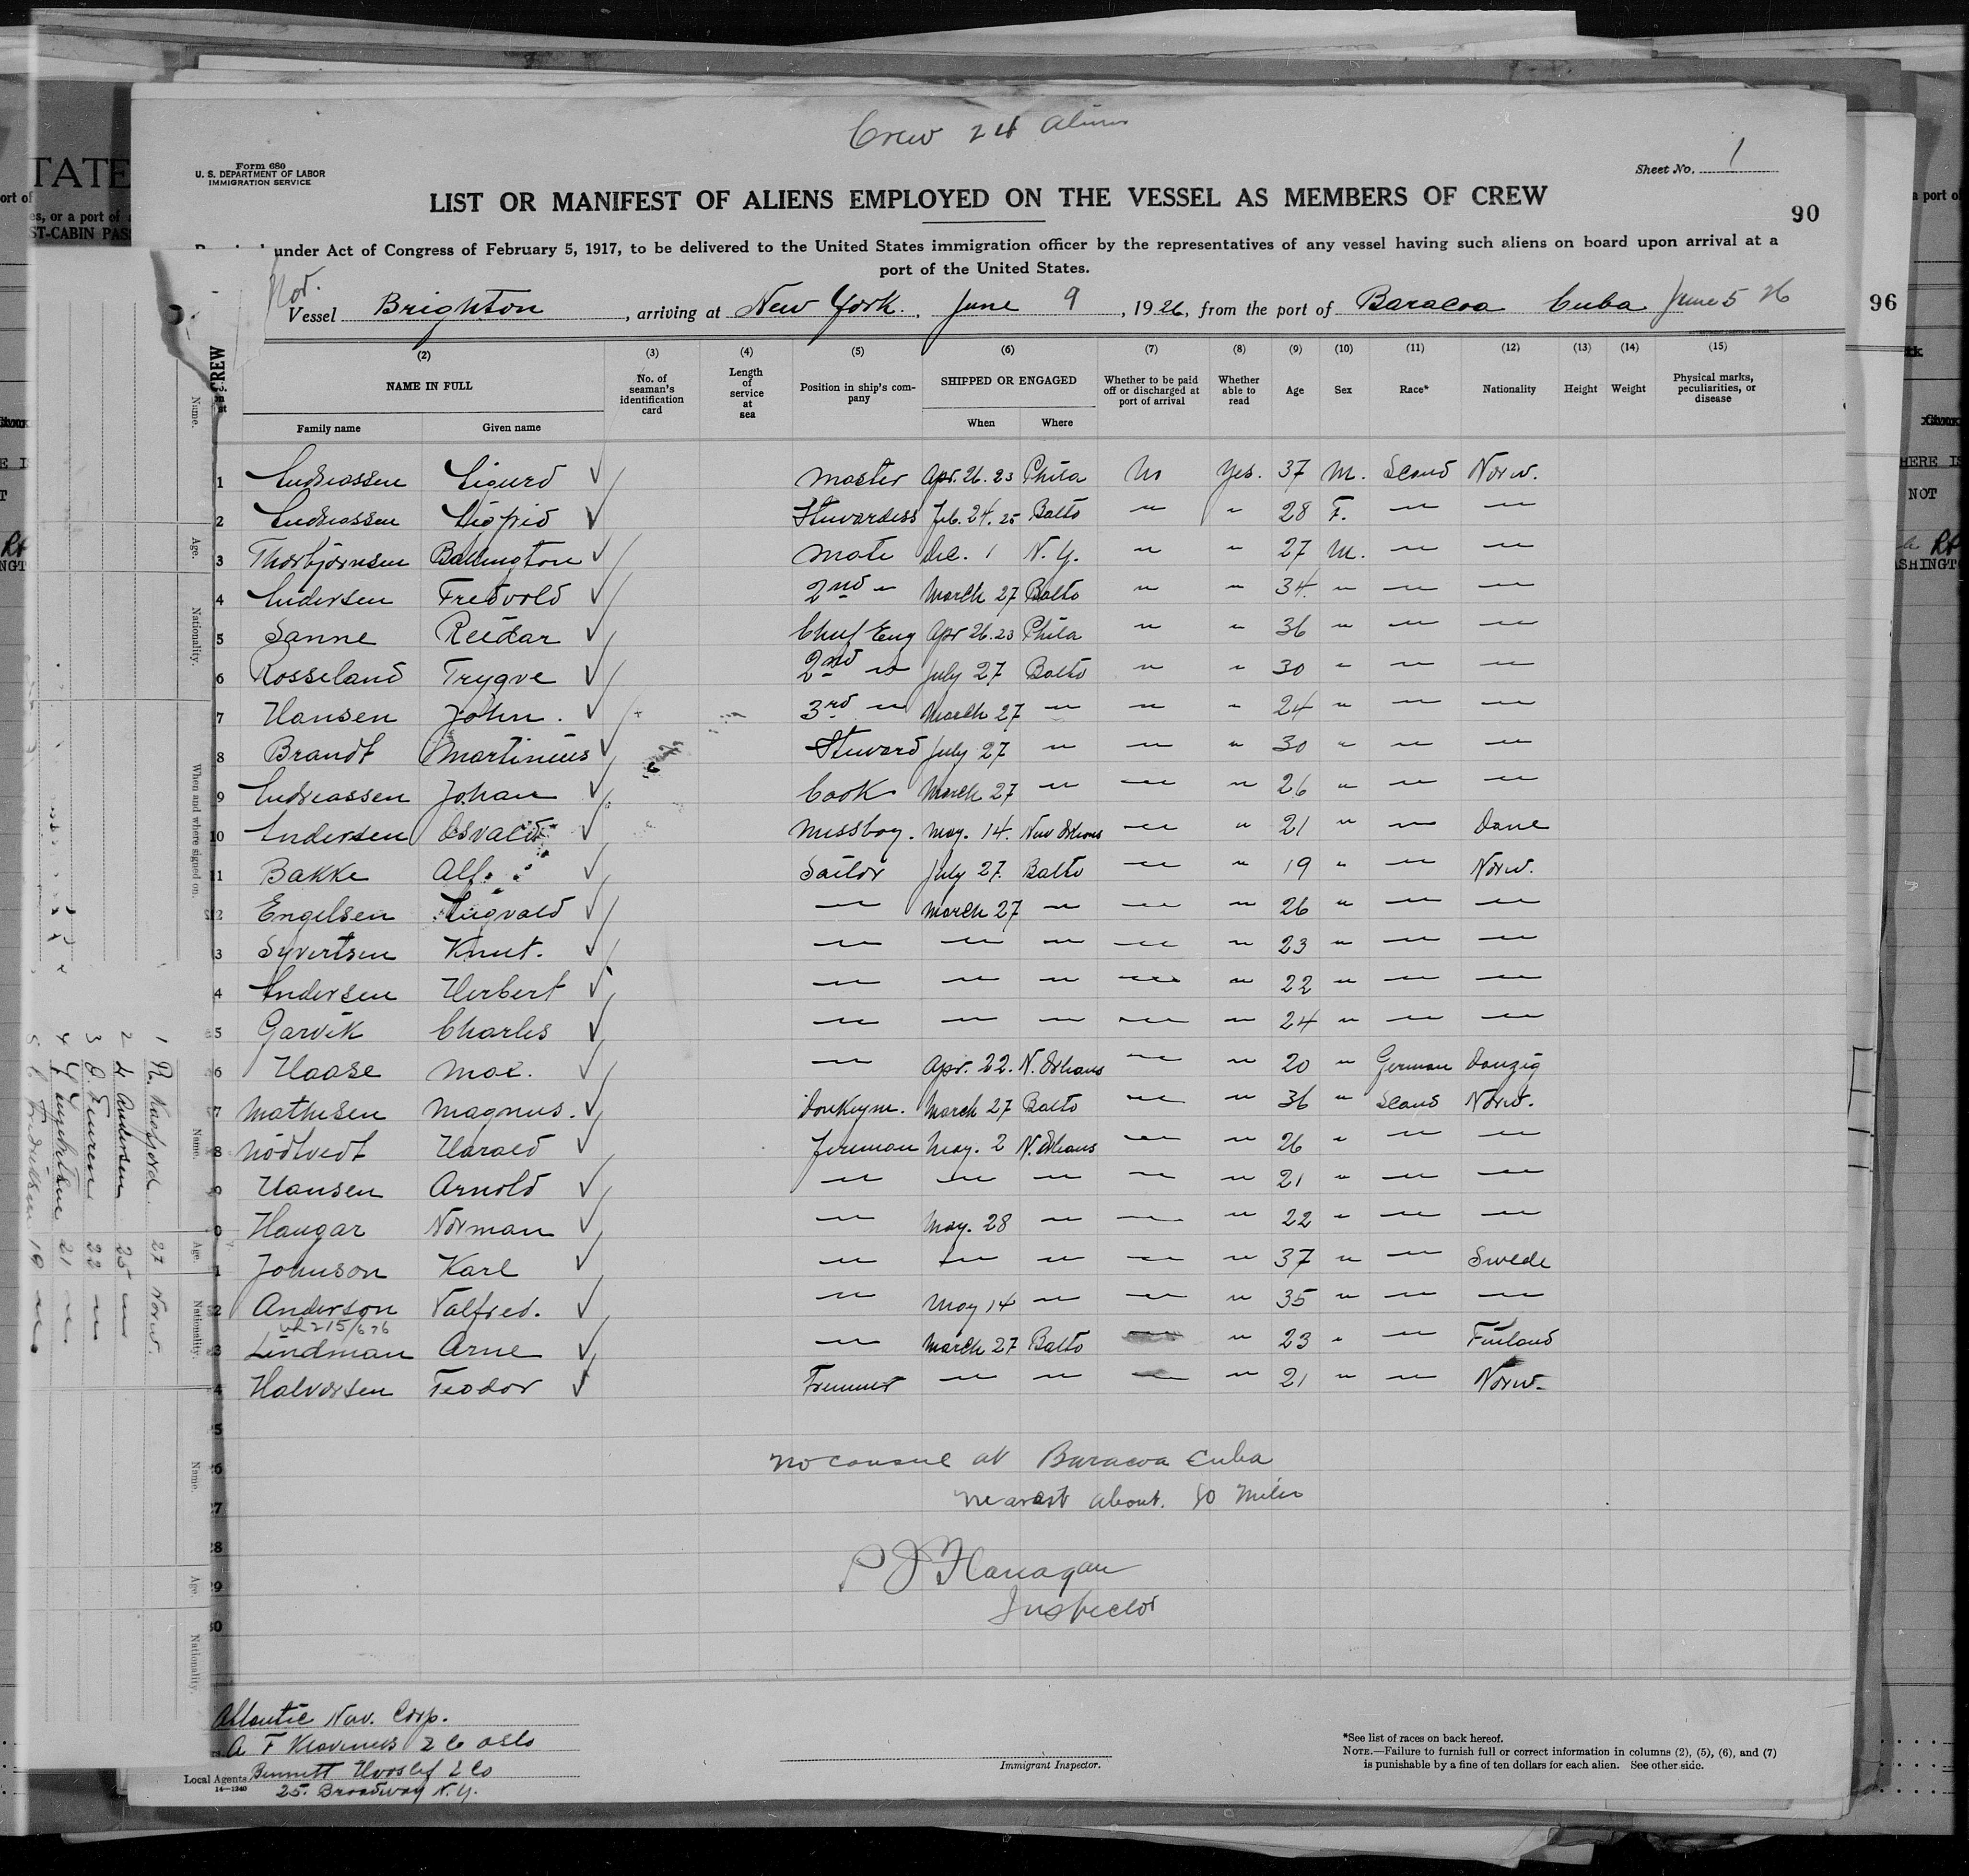 Crew 24 Aliens
Form 680
U. S. DEPARTMENT OF LABOR
IMMIGRATION SERVICE
Sheet No. 1
LIST OR MANIFEST OF ALIENS EMPLOYED ON THE VESSEL AS MEMBERS OF CREW
90
under Act of Congress of February 5, 1917, to be delivered to the United States immigration officer by the representatives of any vessel having such aliens on board upon arrival at a
port of the United States.
Nor.
Vessel Brighton, arriving at New York, June 9, 1926, from the port of Baracoa Cuba June 5 26
96
(2) (3) (4) (5) (6) (7) (8) (9) (10) (11) (12) (13) (14) (15)
NAME IN FULL No. of seaman's identification card Length of service at sea Position in ship's company SHIPPED OR ENGAGED Whether to be paid off or discharged at port of arrival Whether able to read Age Sex Race* Nationality Height Weight Physical marks, peculiarities, or disease
Family name Given name When Where
1 Andreassen Sigurd ✓ Master Apr. 26. 23 Phila No Yes. 37 M. Scand Norw.
2 Andreassen Sigfrid ✓ Stewardess Feb. 24. 25 Balto " " 28 F. " "
3 Thorbjørnsen Ballington ✓ Mate Dec. 1 N. Y. " " 27 M. " "
4 Andersen Fredvold ✓ 2nd " March 27 Balto " " 34 " " "
5 Sanne Reidar ✓ Chief Eng Apr 26. 23 Phila " " 36 " " "
6 Rosseland Trygve ✓ 2nd " July 27 Balto " " 30 " " "
7 Hansen John. ✓ 3rd " March 27 " " " 24 " " "
8 Brandt Martinius ✓ Steward July 27 " " " 30 " " "
9 Andreassen Johan ✓ Cook March 27 " " " 26 " " "
10 Andersen Osvald ✓ Messboy. May. 14. New Orleans " " 21 " " Dane
11 Bakke Alf. ✓ Sailor July 27. Balto " " 19 " " Norw.
12 Engelsen Sigvald ✓ " March 27 " " " 26 " " "
3 Syvertsen Knut. ✓ " " " " " 23 " " "
4 Andersen Herbert ✓ " " " " " 22 " " "
5 Garvik Charles ✓ " " " " " 24 " " "
6 Haase Max. ✓ " Apr. 22. N. Orleans " " 20 " German Danzig
7 Mathisen Magnus. ✓ Donkeym. March 27 Balto " " 36 " Scand Norw.
8 Nödtvedt Harald ✓ Fireman May. 2 N. Orleans " " 26 " " "
9 Hansen Arnold ✓ " " " " " 21 " " "
0 Haugar Norman ✓ " May. 28 " " " 22 " " "
1 Johnson Karl ✓ " " " " " 37 " " Swede
2 Anderson Valfred. ✓ " May 14 " " " 35 " " "
3 Lindman Arne ✓ " March 27 Balto " " 23 " " Finland
4 Halvorsen Teodor ✓ Trimmer " " " " 21 " " Norw.
25
26
27
28
29
30
No consul at Baracoa Cuba
nearest about. 80 Miles
P J Flanagan
Inspector
Atlantic Nav. Corp.
A F Klaveness & Co Oslo
Local Agents Bennett Hvoslef & Co
14—1240
25. Broadway N. Y.
Immigrant Inspector.
*See list of races on back hereof.
NOTE.—Failure to furnish full or correct information in columns (2), (5), (6), and (7)
is punishable by a fine of ten dollars for each alien. See other side.
Name.
Age.
Nationality.
When and where signed on.
Name.
Age.
Nationality.
Name.
Age.
Nationality.